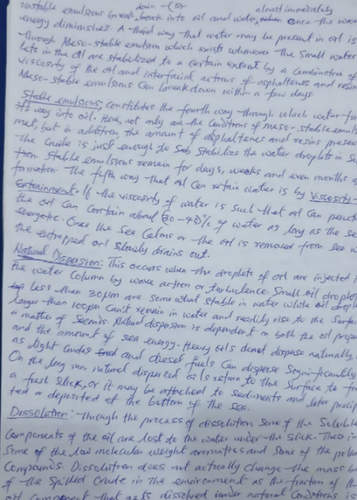 unstable emulsions break down back into oil and water almost immediately once the wave
energy diminishes. A third way that water may be present in oil is
through Meso-stable emulsion which exists whenever the small water
lets in the oil are stabilized to a certain extent by a combination of
viscosity of the oil and interfacial actions of asphaltenes and resin
Meso-stable emulsions can break down within a few days
Stable emulsions constitutes the fourth way through which water
its way into oil. Here, not only are the conditions of meso-stable emul
met, but in addition, the amount of asphaltenes and resins presen
the crude is just enough to stabilize the water droplets in
stable emulsions remain for days, weeks and even months
formation. The fifth way that oil can retain water is by Viscosity
Entrainment: If the viscosity of water is such that oil can
the oil can contain about 30-40% of water as long as the sea
energetic. Once the Sea Calms or the oil is removed from sea
the entrapped oil slowly drains out.
Natural Dispersion: This occurs when the droplets of oil are injected
the water column by wave action or turbulence. Small oil droplets
less than 20µm are some what stable in water while oil drop
larger than 100µm can't remain in water and readily rise to the surface
a matter of seconds. Natural dispersion is dependent on both the oil prop
and the amount of sea energy. Heavy oils donot disperse naturally,
as light crudes and diesel fuels can disperse significantly
On the long run natural dispersed oils return to the surface to
a fresh slick, or it may be attached to sediments and later precipi
ted or deposited at the bottom of the sea.
Dissolution: through the process of dissolution some of the Soluble
Components of the oil are lost to the water under the slick. These
Some of the low molecular weight aromatics and some of the polar
Compounds. Dissolution does not actually change the mass
of the Spilled Crude in the environment as the fraction of the
oil component that gets dissolved under natural conditions